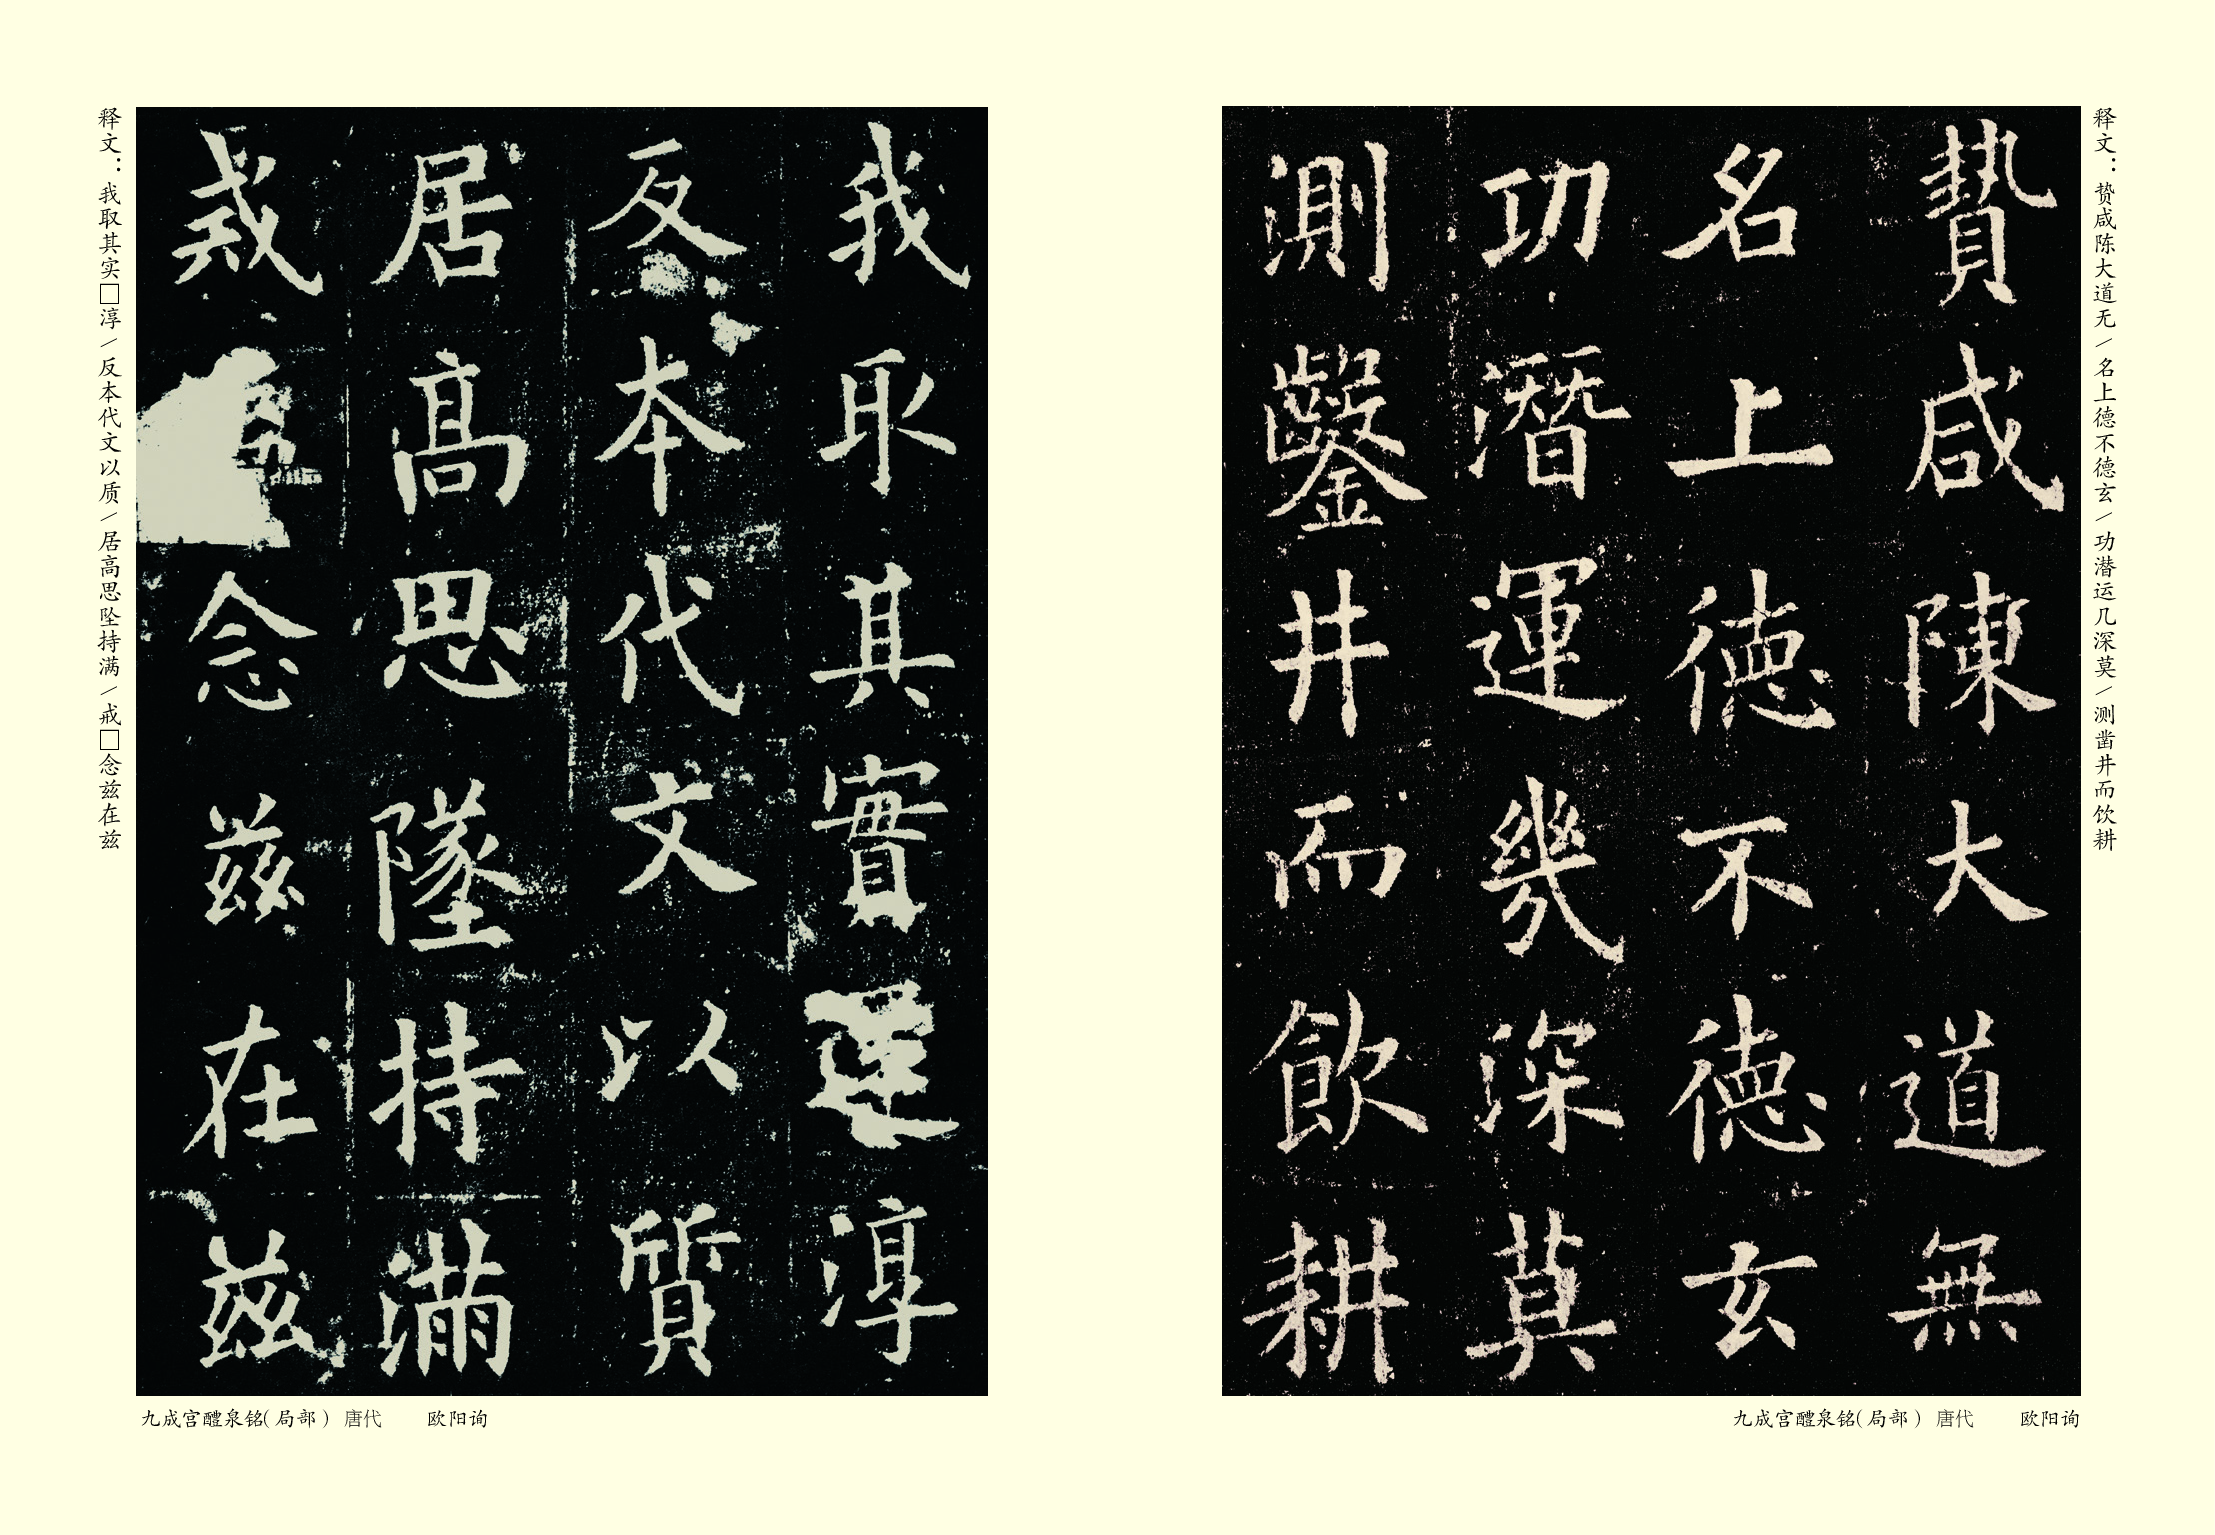 释文：贽咸陈大道无／名上德不德玄／功潜运几深莫／测凿井而饮耕
贄咸陳大道無
名上德不德玄
功潛運幾深莫
測鑿井而飲耕
九成宫醴泉铭（局部） 唐代 欧阳询
我取其實淳
反本代文以質
居高思墜持滿
戒念兹在兹
释文：我取其实□淳／反本代文以质／居高思坠持满／戒□念兹在兹
九成宫醴泉铭（局部） 唐代 欧阳询